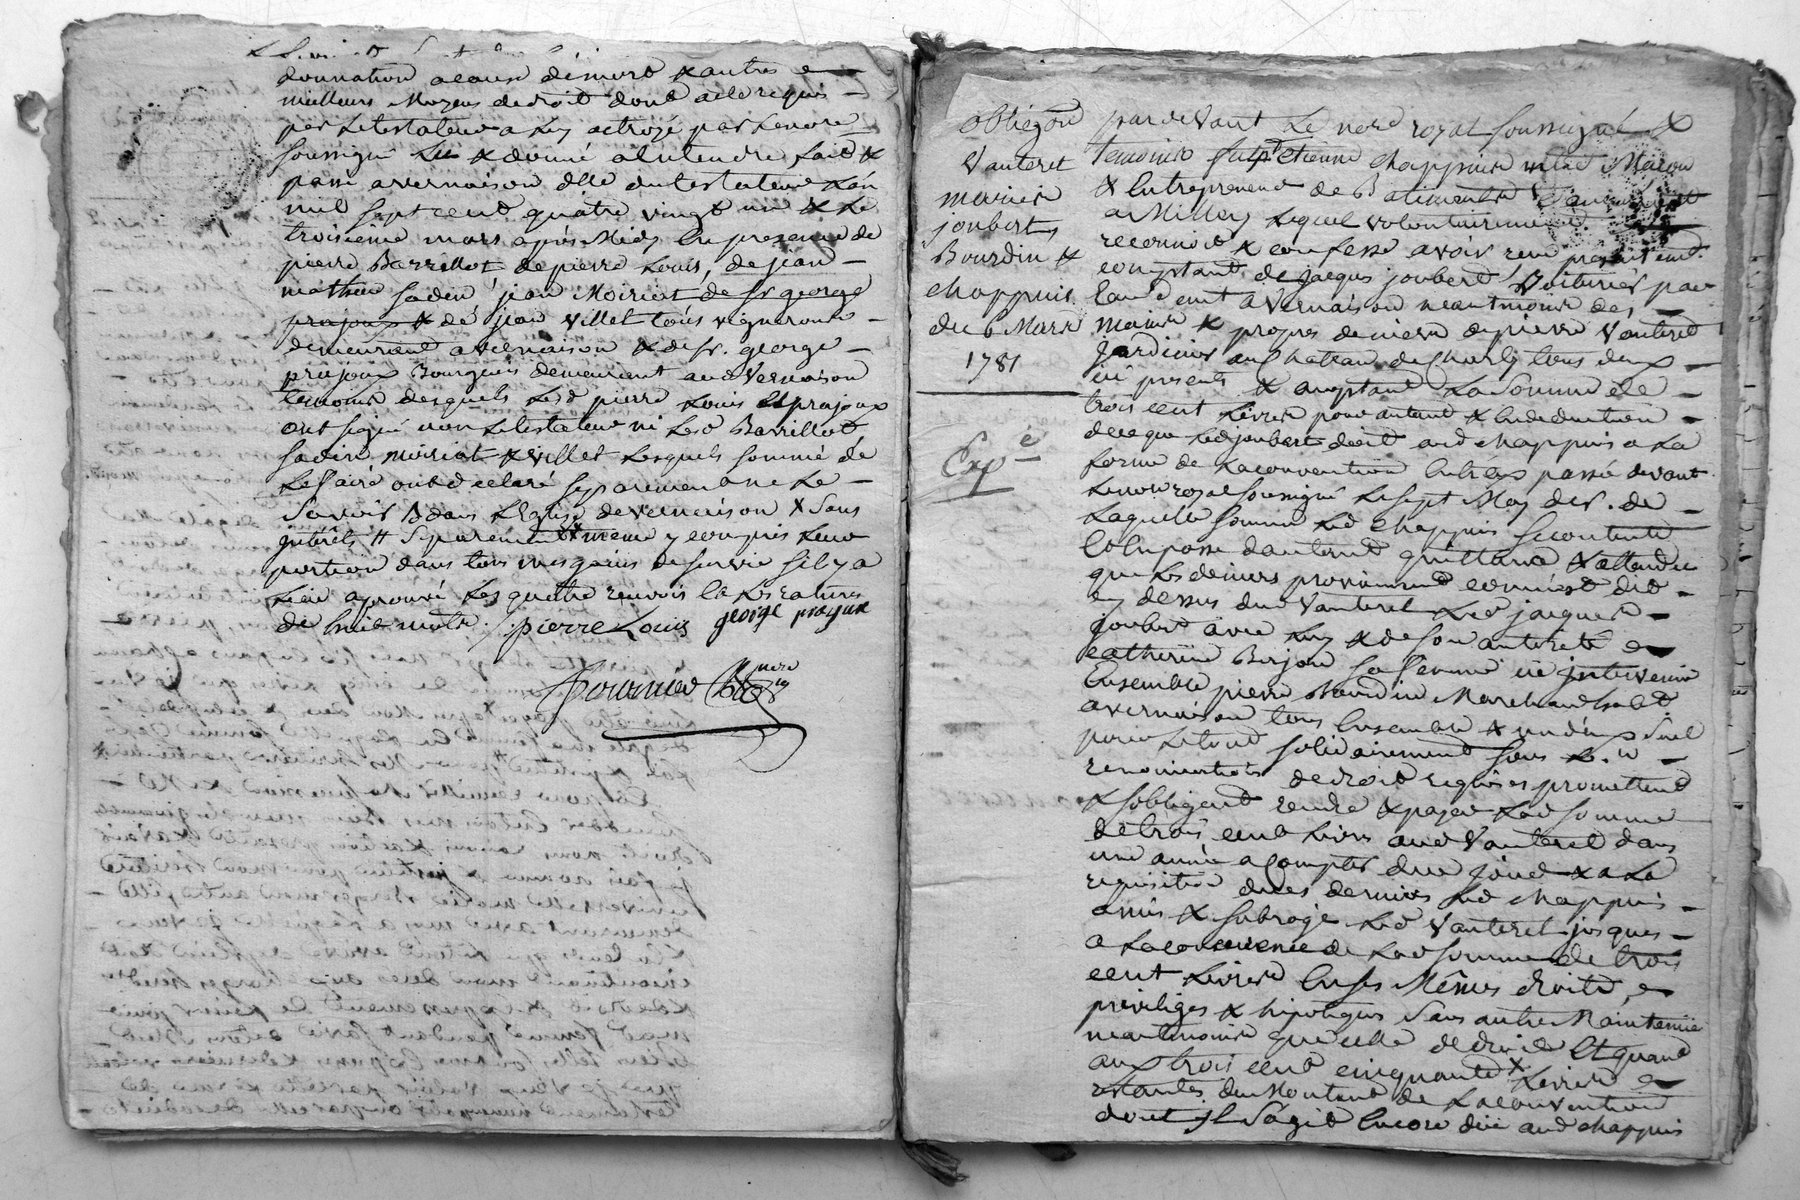 donnation a cause de mort & autres
meilleurs Moyens de droit dont acte requis
par Le testateur a Luy octroyé par Le no.re
soussigné Lu & donné a Entendre fait &
passé a vernaison dlle du testateur L'an
mil sept cent quatre vingt un & Le
troisième mars après Midy En presence de
pierre Barrillot de pierre Louis, de jean
mathieu sadin, jean Moiriat de Sr george
prajoux & de jean villet tous vignerons
demeurant a vernaison & de Sr. george
prajoux Bourgeois demeurant aud Vernaison
temoins desquels Lesd pierre Louis et prajoux
ont signé non Le testateur ni Lesd Barrillot
sadin moiriat & villet Lesquels sommé de
Le faire ont declaré separement ne Le
Savoir B dans L'Eglise de vernaison & Sans
jnterêts # Separement & même y compris Leur
portion dans tous mes gains de survie s'il y a
Lieu aprouvé Les quatre renvois & Les ratures
de huit mots. pierre Louis george prajoux
obligãon
Vauteret
marier
joubert,
Bourdin &
chappuis
du 6 Mars
1781
Exp.é
pardevant Le no.re royal soussigné &
temoins fut pt etienne chappuis mtre Macon
& Entrepreneur de Batiments demeurant
a Millery Lequel volontairement
reconnoit & confesse avoir reçu presentemt
comptant de jacques joubert Voiturier par
Eau demt a Vernaison neantmoins des
mains & propres deniers de pierre Vauteret
jardinier au Chateau de Charly tous deux
ici presents & acceptant La Somme de
trois cent Livres pour autant & En deduction
de ce que Led joubert doit aud chappuis a La
forme de La convention Entr'eux passé devant
Le no.re royal soussigné Le sept May der. de
Laquelle somme Led chappuis se contente
Et En passe d'autant quittance & attendu
que Les deniers proviennent comme est dit
cy dessus dud Vauteret Led jacques
joubert avec Luy & de son autorité
catherine Berjon sa femme ici jntervenir
Ensemble pierre Bourdin Marchand habt
a vernaison tous Ensemble & un d'eux seul
pour Le tout solidairement sous L.
renonciations de droit requises promettent
& s'obligent rendre & payer Lad somme
de trois cent Livres aud Vauteret dans
une année a Compter du jour & a La
requisition duces derniers Led chappuis
a mis & subrogé Led Vauteret jusques
a La concurrence de Lad somme de trois
cent Livres En ses Mêmes droits,
privileges & hipoteques Sans autre Maintenüe
neantmoins que celle de droit Et quant
aux trois cent cinquante & Livres
restantes du Montant de La convention
dont jl s'agit Encore düe aud chappuis